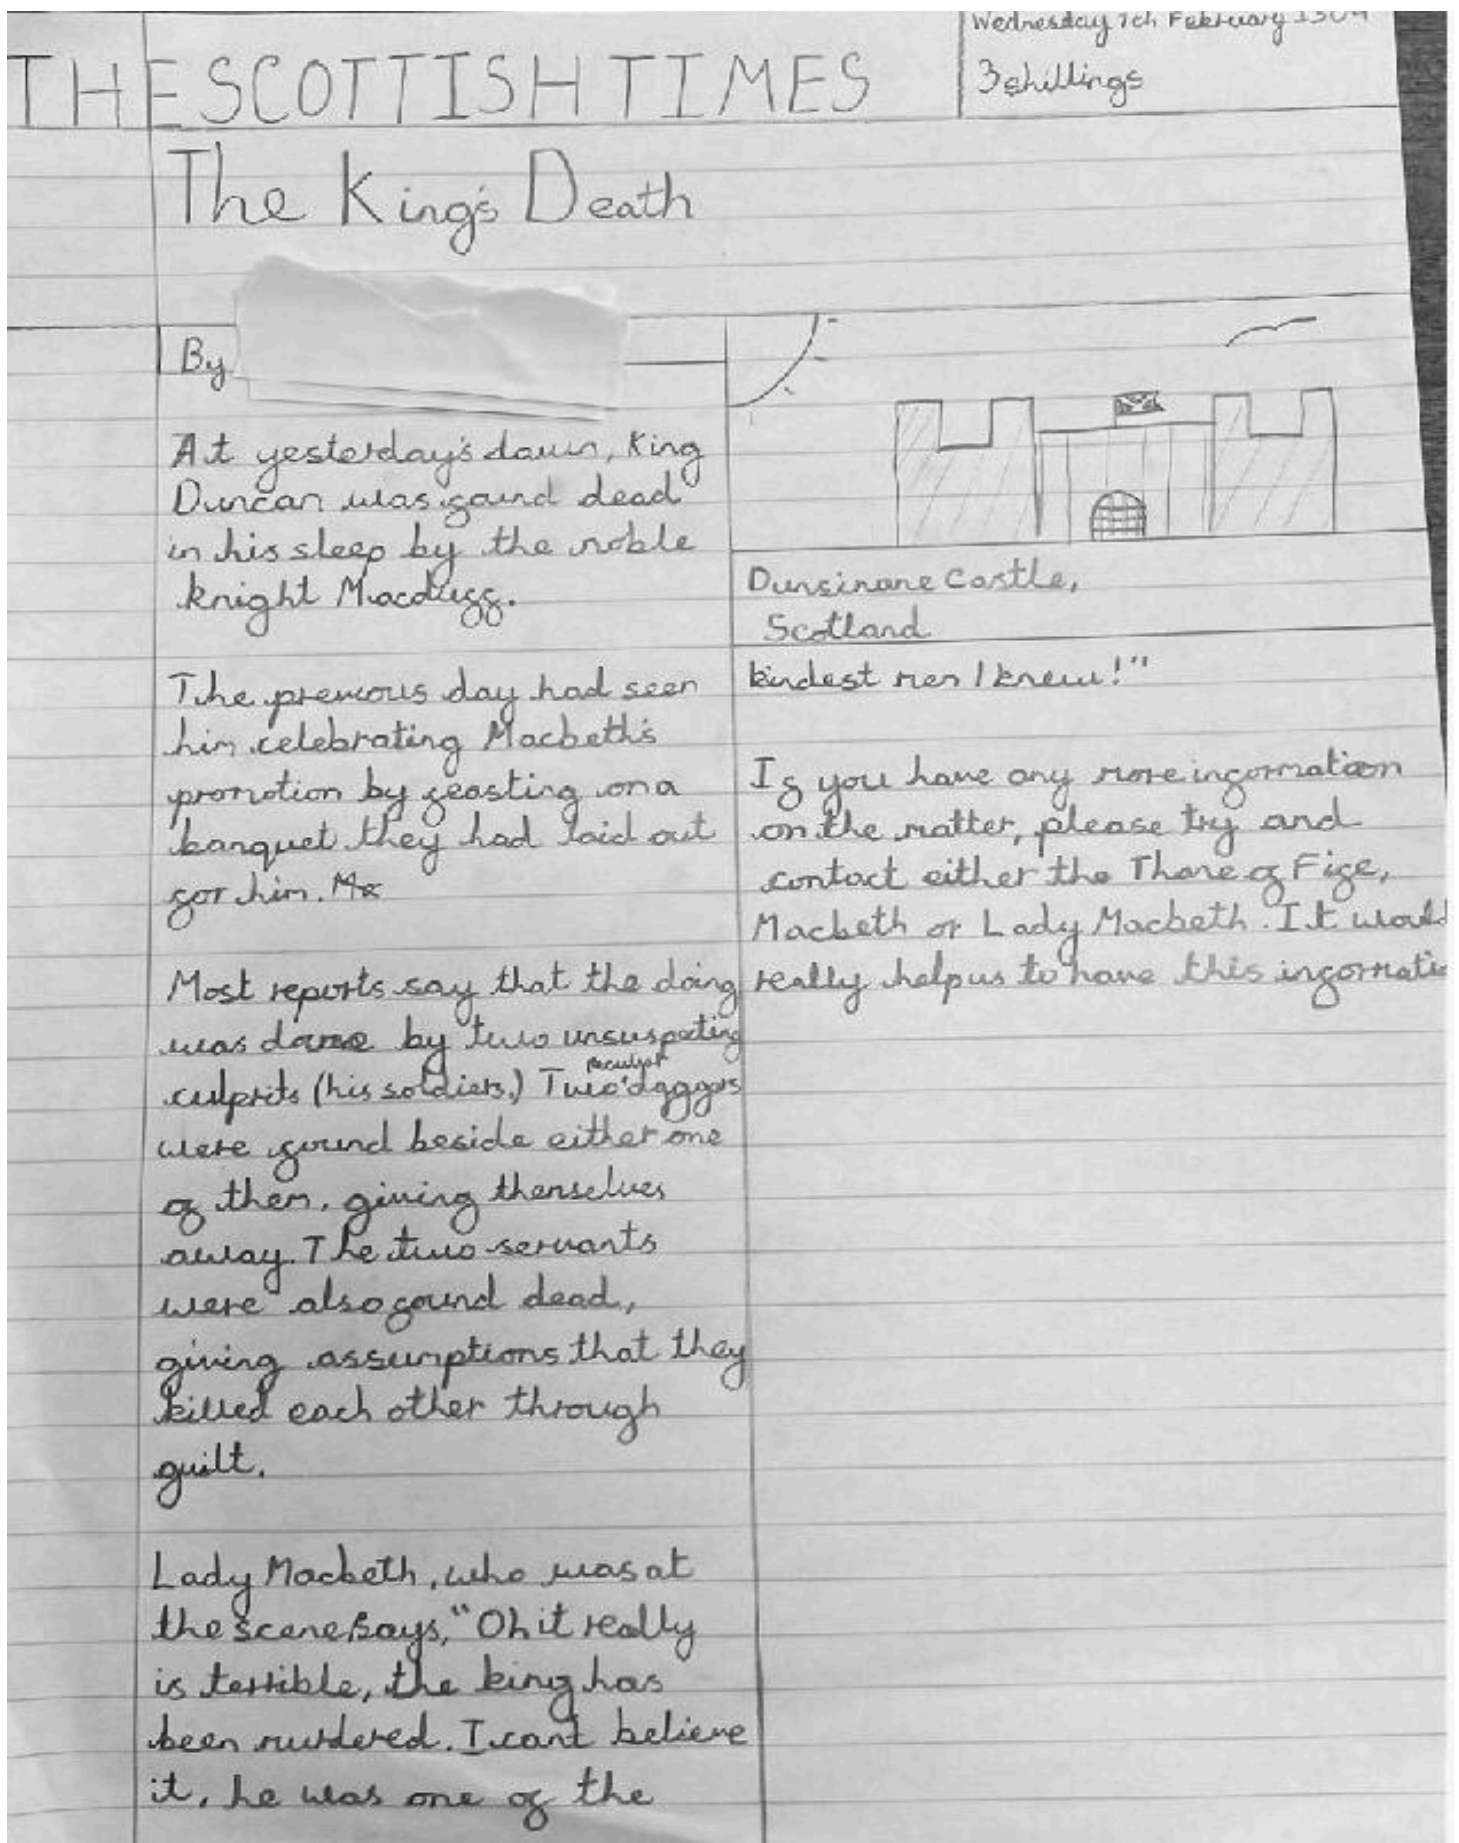 Wednesday 7th February
3 shillings
THE SCOTTISH TIMES
The King's Death
By
At yesterday's dawn, King
Duncan was found dead
in his sleep by the noble
knight Macduff.
The previous day had seen
him celebrating Macbeth's
promotion by feasting on a
banquet they had laid out
for him. Ma
Most reports say that the doing
was done by two unsuspecting
culprits (his soldiers.) Two peculiar daggers
were found beside either one
of them, giving themselves
away. The two servants
were also found dead,
giving assumptions that they
killed each other through
guilt.
Lady Macbeth, who was at
the scene says, "Oh it really
is terrible, the king has
been murdered. I cant believe
it, he was one of the
Dunsinane Castle,
Scotland
kindest men I knew!"
If you have any more information
on the matter, please try and
contact either the Thane of Fife,
Macbeth or Lady Macbeth. It would
really help us to have this informati